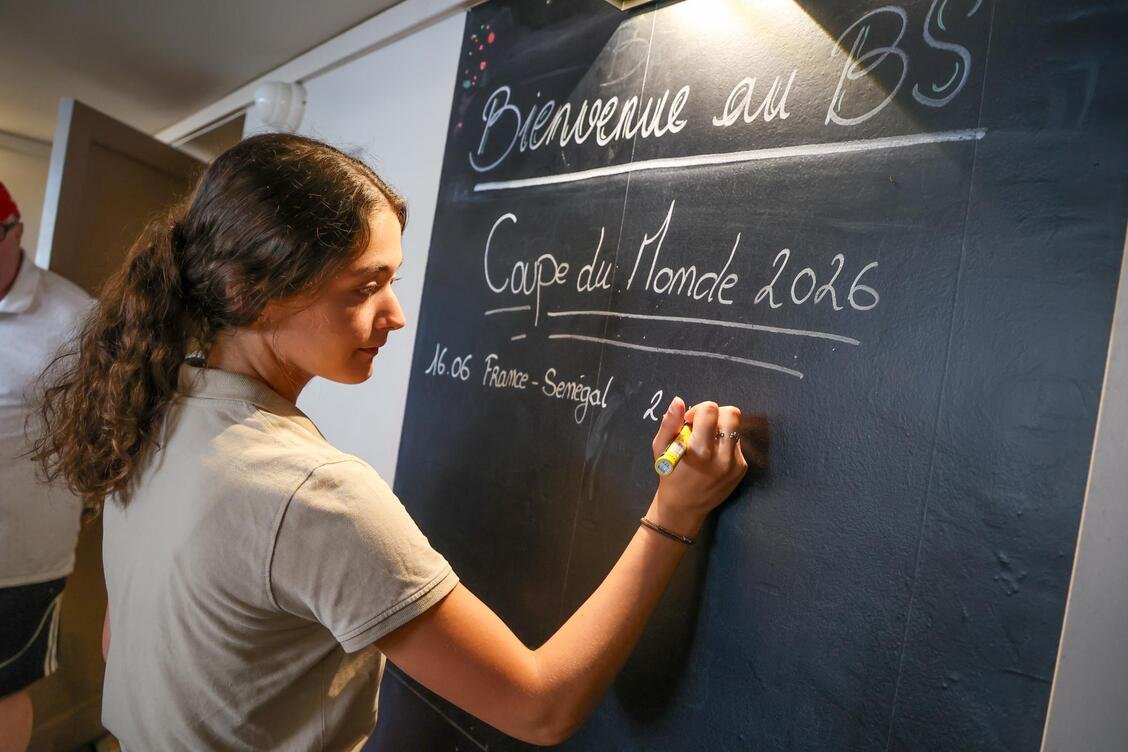 Bienvenue au BS
Coupe du Monde 2026
16.06 France - Senégal 2